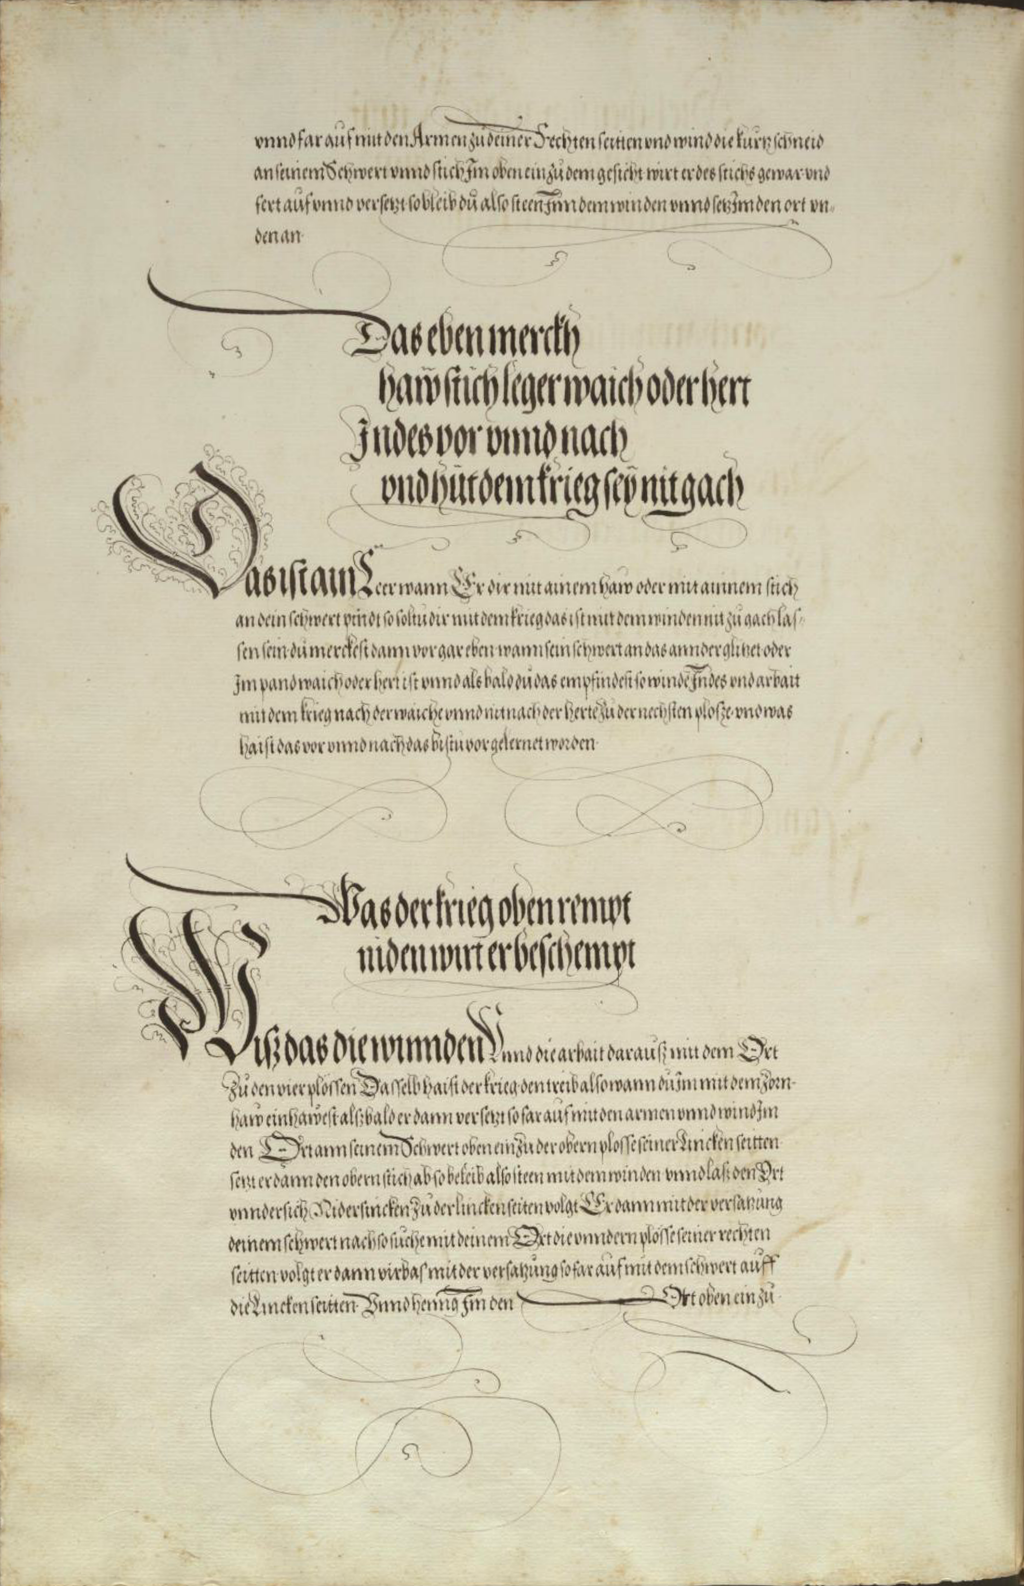 vnnd far auf mit den Armen zu deiner Rechten seitten vnd wind die kurtz schneid
an seinem Schwert vnnd stich Im oben ein zu dem gesicht wirt er des stichs gewar vnd
fert auf vnnd versetzt so bleib du also steen Inn dem winden vnnd setz Im den ort vn-
den an
Das eben merckh
haw stich leger waich oder hert
Indes vor vnnd nach
vnd hüt dem krieg sey nit gach
Das ist ain Leer wann Er dir mit ainem haw oder mit ainnem stich
an dein schwert pindt so soltu dir mit dem krieg das ist mit dem winden nit zu gach las-
sen sein du merckest dann vor gar eben wann sein schwert an das annder glitzet oder
Im pand waich oder hert ist vnnd als bald du das empfindest so winde Indes vnd arbait
mit dem krieg nach der waiche vnnd nit nach der herte zu der nechsten plosze vnd was
haist das vor vnnd nach das bistu vor gelernet worden
Was der krieg oben rempt
niden wirt er beschempt
Wisz das die winnden Vnnd die arbait darausz mit dem Ort
zu den vier plossen Dasselb haist der krieg den treib also wann du Im mit dem zorn-
haw einhawest alszbald er dann versetzt so far auf mit den armen vnnd wind Im
den Ort ann seinem Schwert oben ein zu der obern plosse seiner Lincken seitten
setzt er dann den obern stich ab so beleib also steen mit dem winden vnnd lasz den Ort
vnndersich Nidersincken zu der lincken seiten volgt Er dann mit der versatzung
deinem schwert nach so suche mit deinem Ort die vnndern plosse seiner rechten
seitten volgt er dann virbas mit der versatzung so far auf mit dem schwert auff
die Lincken seitten Vnnd henng Im den Ort oben ein zu